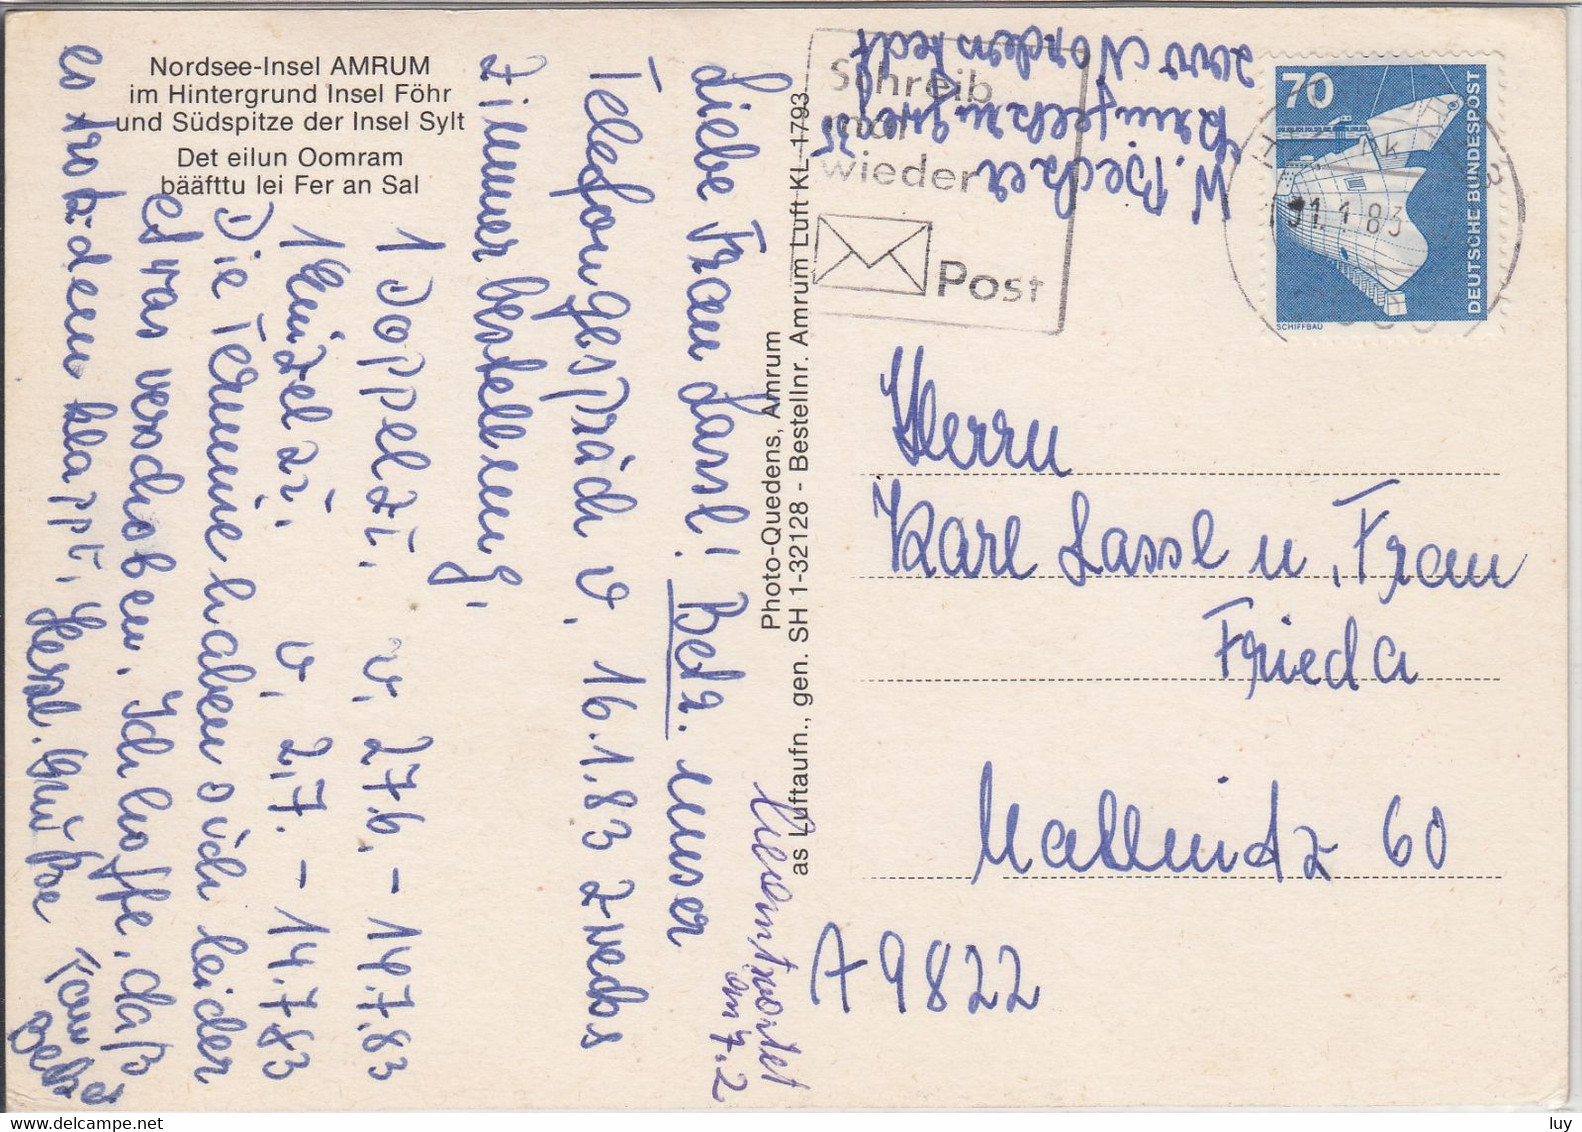 Nordsee-Insel AMRUM
im Hintergrund Insel Föhr
und Südspitze der Insel Sylt
Det eilun Oomram
bääfttu lei Fer an Sal
Liebe Frau Lassl! Betr. unser
Telefongespräch v. 16.1.83 zwecks
Zimmerbestellung.
1 Doppelzi. v. 27.6. - 14.7.83
1 Einzelzi. v. 2.7. - 14.7.83
Die Termine haben sich leider
etwas verschoben. Ich hoffe, daß
es trotzdem klappt. Herzl. Grüße
Photo-Quedens, Amrum
as Luftaufn., gen. SH 1-32128 - Bestellnr. Amrum Luft KL 1793
beantwortet
am 7.2
W. Becker
2000 Norderstedt
Schreib
mal
wieder
Post
70
DEUTSCHE BUNDESPOST
SCHIFFBAU
1.83
Herrn
Karl Lassl u. Frau
Frieda
Mallnitz 60
A 9822
luy